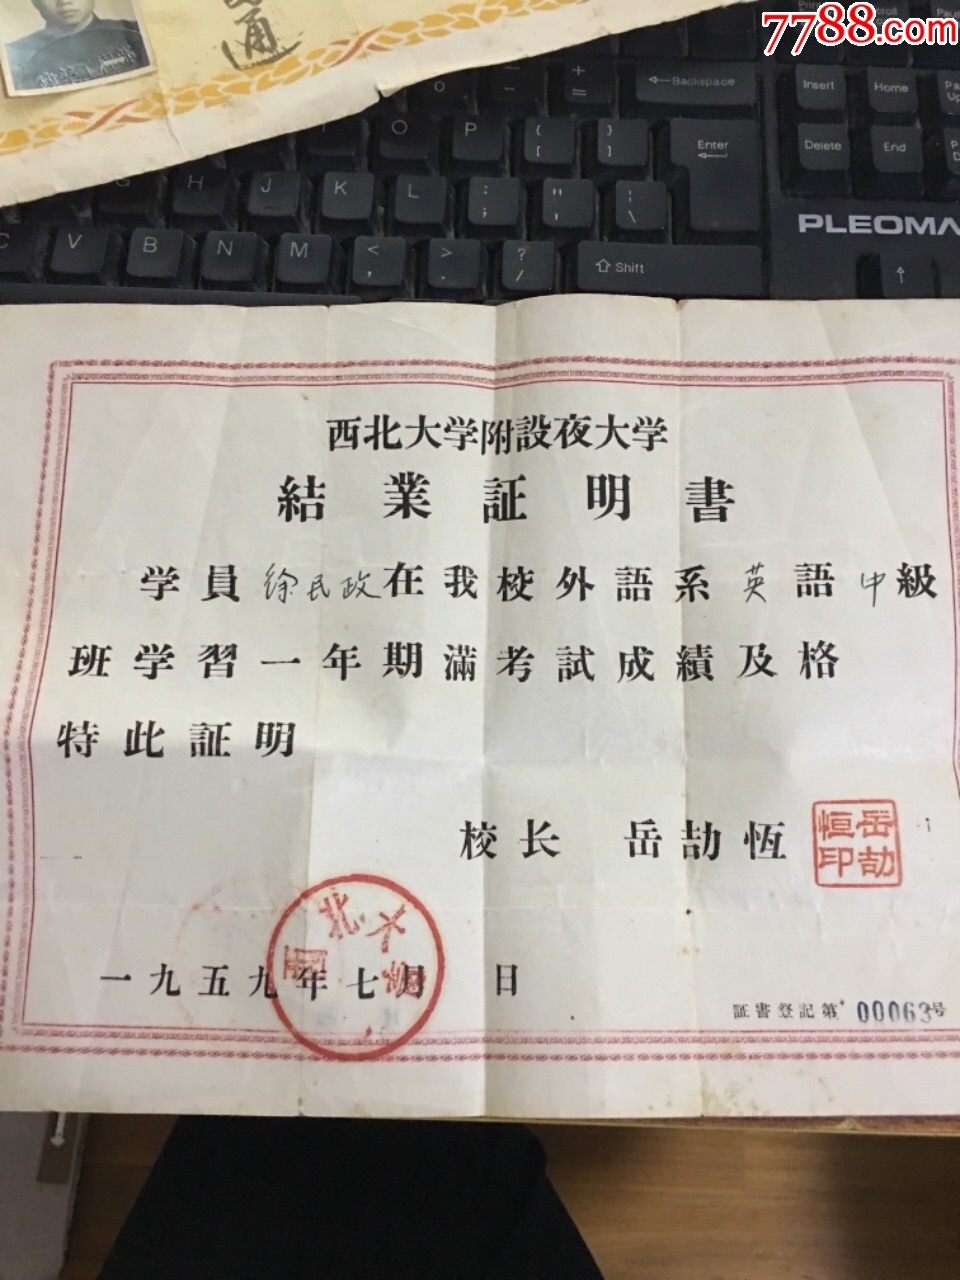 7788.com
通
Backspace
Insert
Home
Enter
Delete
End
O P { [ } ]
H J K L : ; " ' | \
C V B N M < , > . ? /
Shift
PLEOMA
西北大学附設夜大学
結業証明書
学員徐民政在我校外語系英語中級
班学習一年期滿考試成績及格
特此証明
校长 岳劼恆
岳劼恒印
西北大學
一九五九年七月 日
証書登記第 00063号